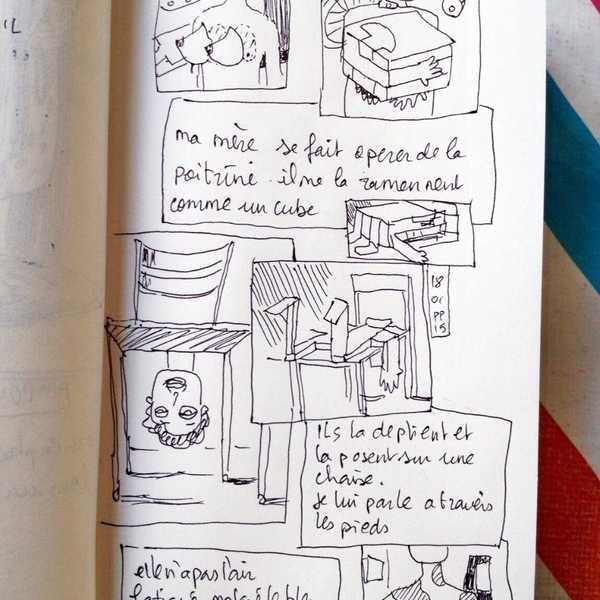 IL
ma mère se fait operer de la
poitrine. il me la ramennent
comme un cube
18
01
PP
15
Ils la deplient et
la posent sur une
chaise.
Je lui parle a travers
les pieds
elle n'a pas l'air